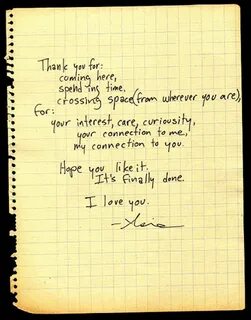 Thank you for:
coming here,
spending time,
crossing space (from wherever you are),
for:
your interest, care, curiousity,
your connection to me,
my connection to you.
Hope you like it.
It's finally done.
I love you.